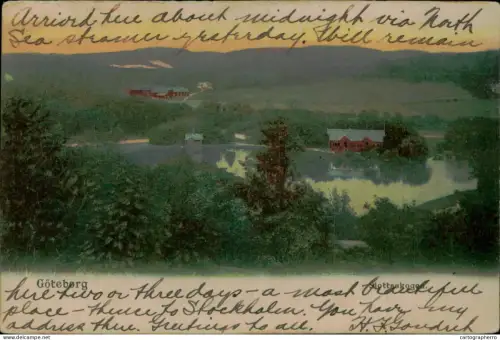 Arrived here about midnight via North
Sea steamer yesterday. I will remain
Göteborg
Slottsskogen
here two or three days - a most beautiful
place - thence to Stockholm. You have my
address there. Greetings to all.
cartographero